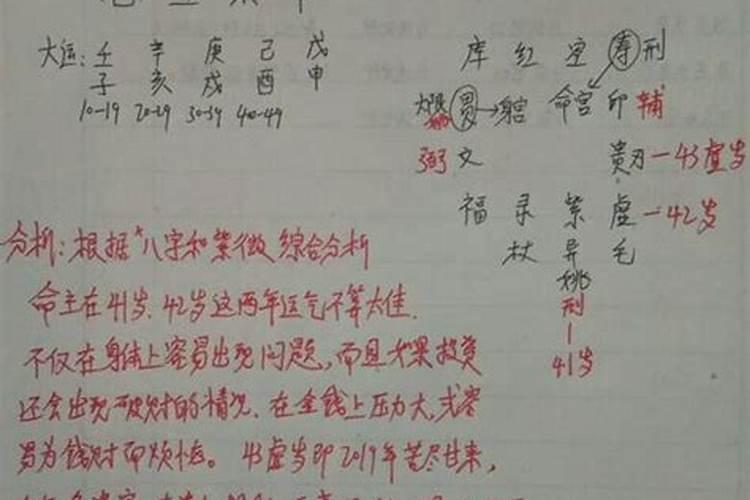 大运: 壬 辛 庚 己 戊
子 亥 戌 酉 申
10-19 20-29 30-39 40-49
库 红 空 寿 刑
大限 昌→身宫 命宫 印 辅
弼 文 贵刃-43虚岁
福 录 紫 虚-42岁
杖 异 毛
姚
刑
41岁
分析: 根据"八字和紫微综合分析
命主在41岁、42岁这两年运气不算太佳.
不仅在身体上容易出现问题, 而且如果投资
还会出现破财的情况. 在金钱上压力大, 或容
易为钱财而烦恼。 43虚岁即2019年苦尽甘来,